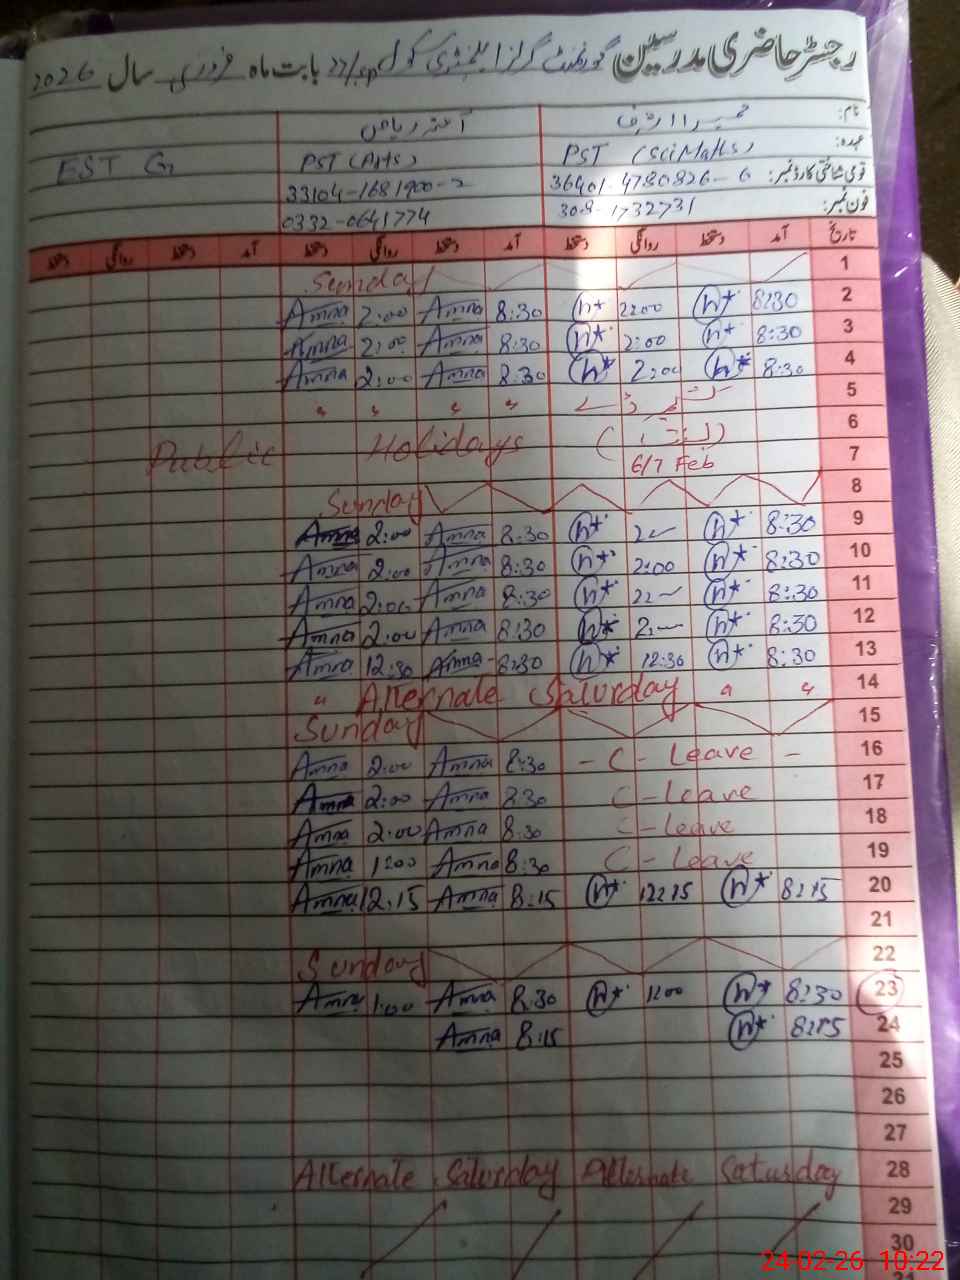 رجسٹر حاضری مدرسین گورنمنٹ گرلز ایلیمنٹری سکول 22/SP بابت ماہ فروری سال 2026
نام: آمنہ ریاض
عہدہ: PST (Sci Maths) PST (Arts) EST G
قومی شناختی کارڈ نمبر: 36401-4780826-6 33104-1681900-2
فون نمبر: 308-1732731 0332-0641774
تاریخ آمد دستخط روانگی دستخط آمد دستخط روانگی دستخط آمد روانگی دستخط
Sunday 1
Amna 2:00 Amna 8:30 n* 2:00 n* 8:30 2
Amna 2:00 Amna 8:30 n* 2:00 n* 8:30 3
Amna 2:00 Amna 8:30 n* 2:00 n* 8:30 4
" " " " 5
Public Holidays 6
6/7 Feb 7
Sunday 8
Amna 2:00 Amna 8:30 n* 2— n* 8:30 9
Amna 2:00 Amna 8:30 n* 2:00 n* 8:30 10
Amna 2:00 Amna 8:30 n* 2:— n* 8:30 11
Amna 2:00 Amna 8:30 n* 2:— n* 8:30 12
Amna 12:30 Amna 8:30 n* 12:30 n* 8:30 13
" Alternate Saturday " " 14
Sunday 15
Amna 2:00 Amna 8:30 - C - Leave - 16
Amna 2:00 Amna 8:30 C - Leave 17
Amna 2:00 Amna 8:30 C - Leave 18
Amna 1:00 Amna 8:30 C - Leave 19
Amna 12:15 Amna 8:15 n* 12:15 n* 8:15 20
21
Sunday 22
Amna 1:00 Amna 8:30 n* 1:00 n* 8:30 23
Amna 8:15 n* 8:15 24
25
26
27
Alternate Saturday Alternate Saturday 28
29
30
24-02-26 10:22